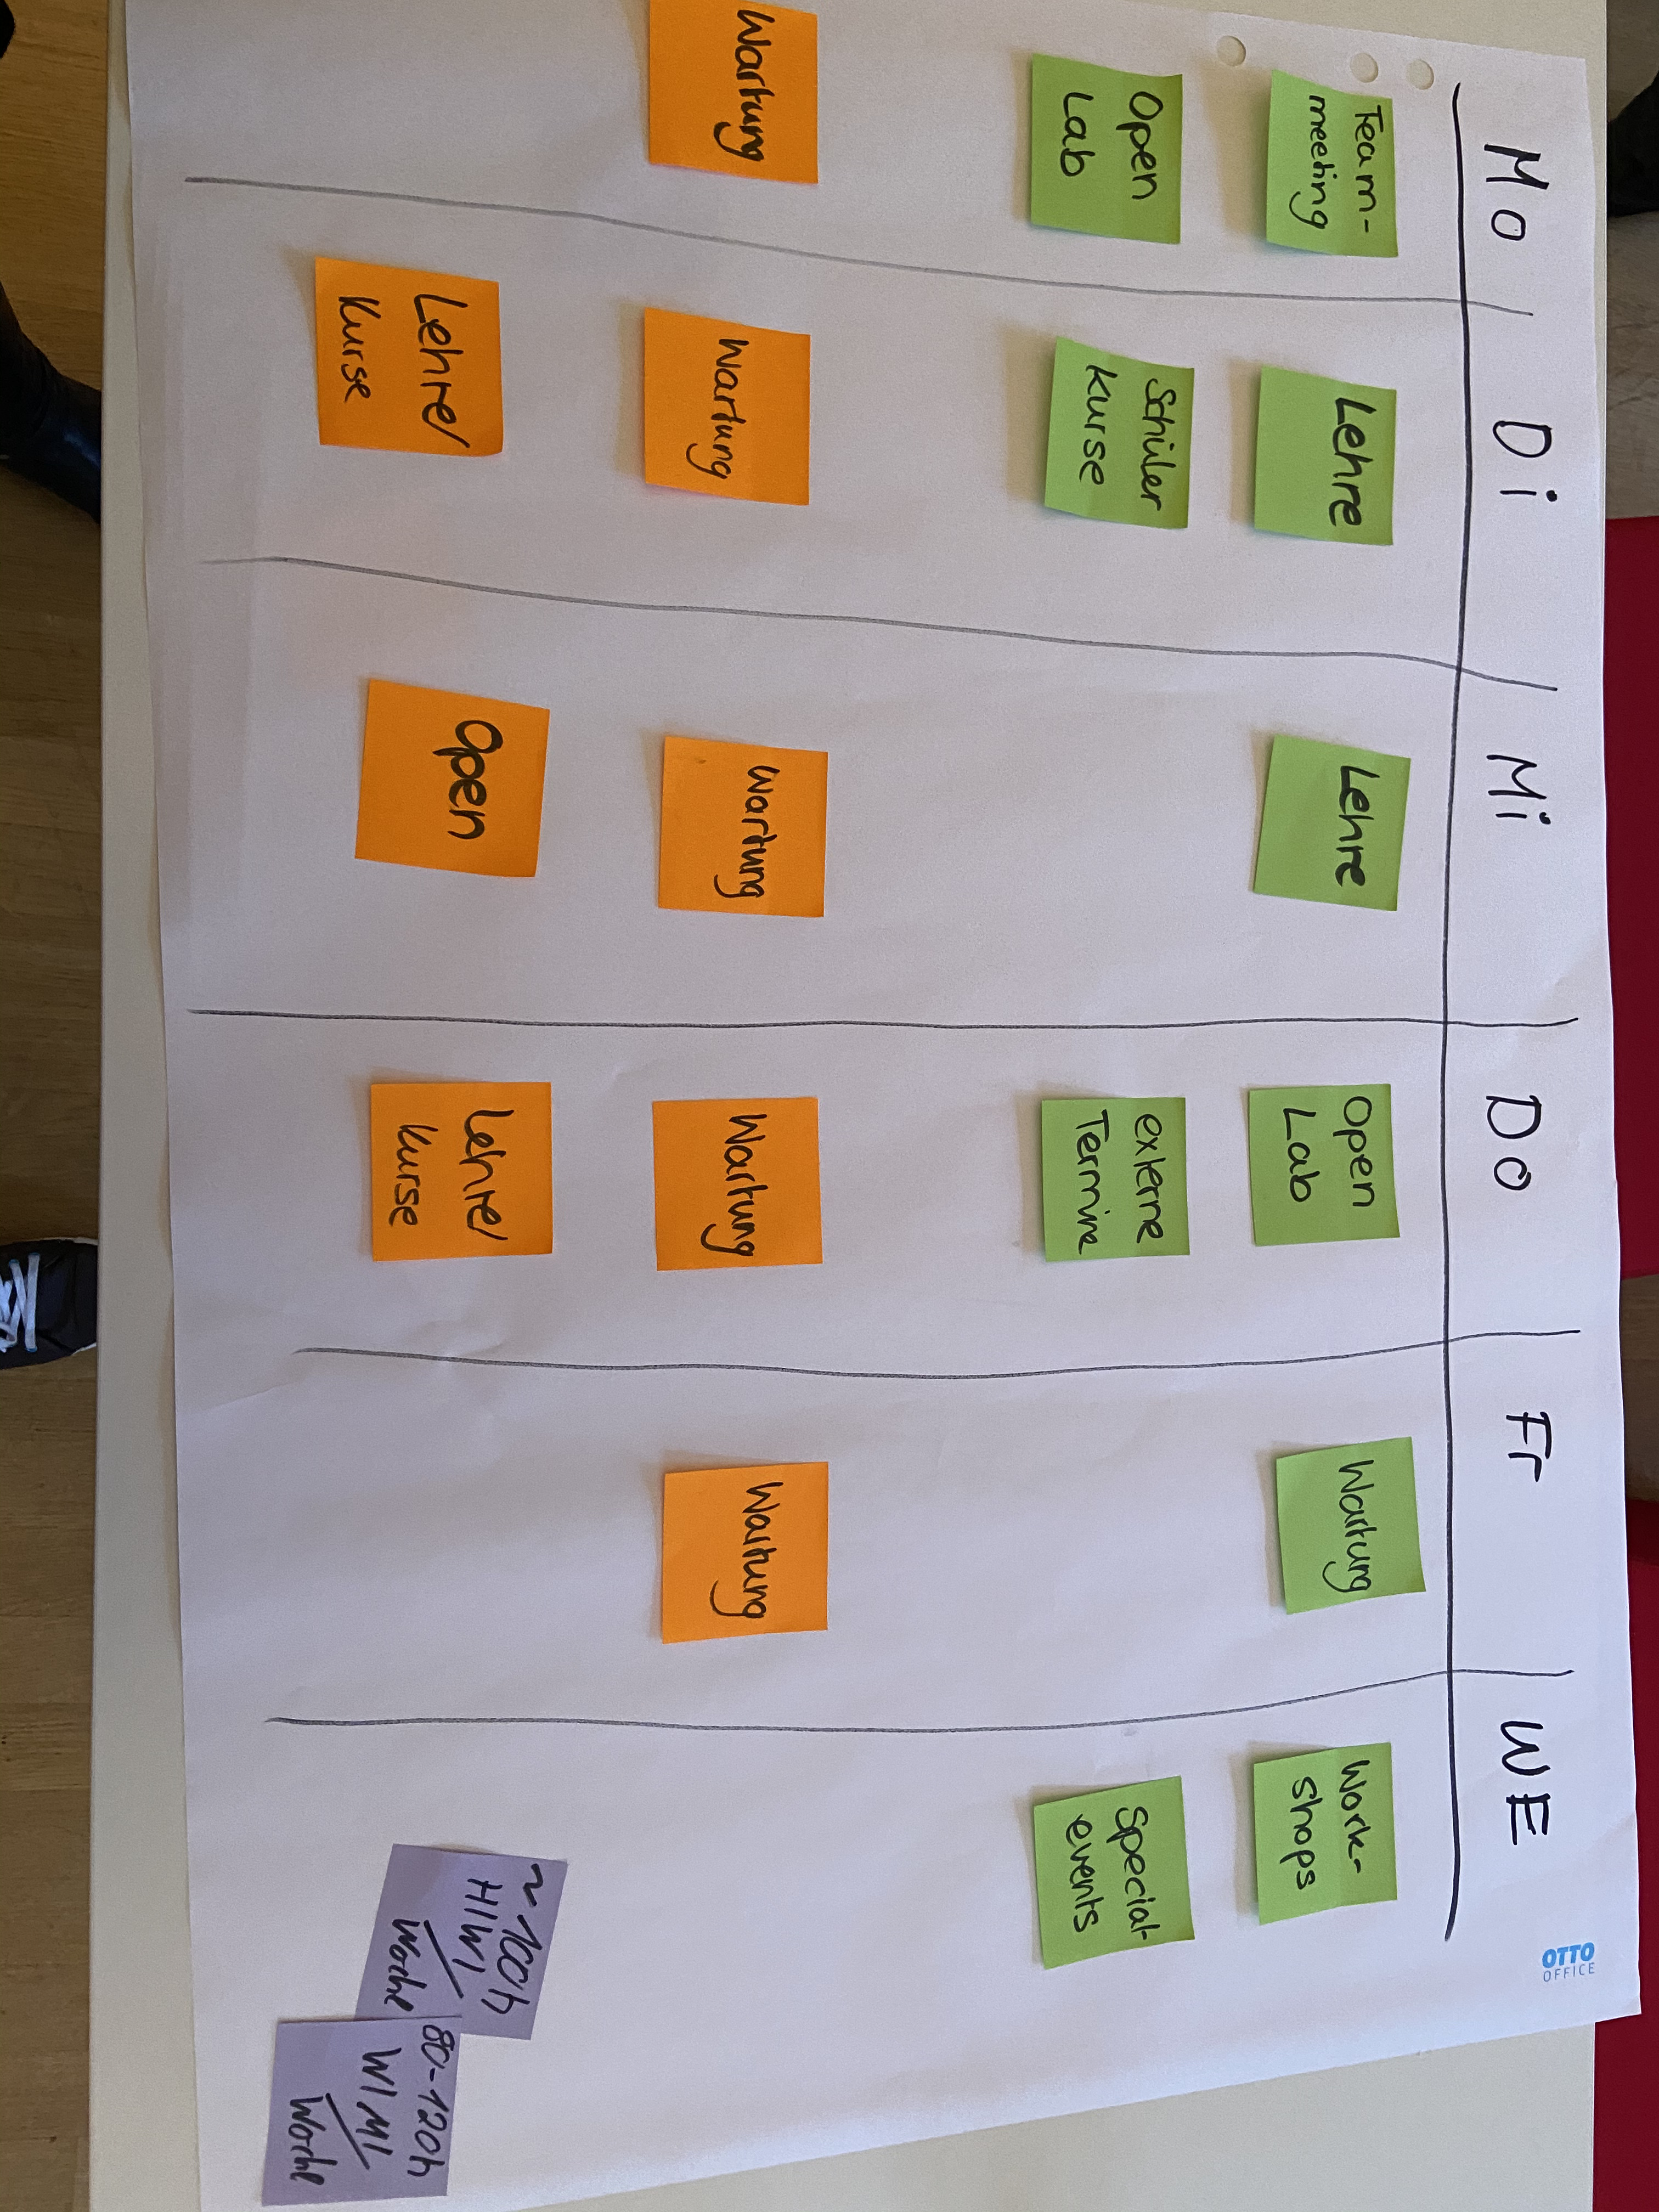 Mo Di Mi Do Fr WE
OTTO
OFFICE
Team-
meeting
Lehre
Lehre
Open
Lab
Wartung
Work-
shops
Open
Lab
Schüler
kurse
externe
Termine
Special-
events
Wartung
Wartung
Wartung
Wartung
Wartung
Lehre/
Kurse
Open
Lehre/
Kurse
~ 100h
HIWI/
Woche
80-120h
WIMI/
Woche